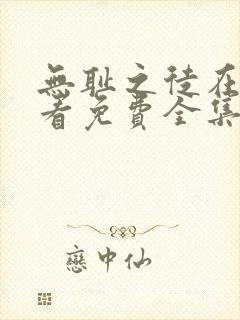 無耻之徒在
看免費全集
戀中仙